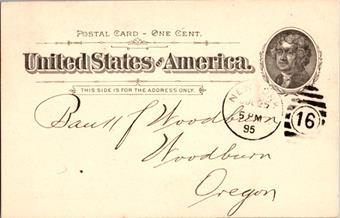 POSTAL CARD - ONE CENT.
United States of America.
THIS SIDE IS FOR THE ADDRESS ONLY.
Bank of Woodburn
Woodburn
Oregon
NEW
5 PM
95
16